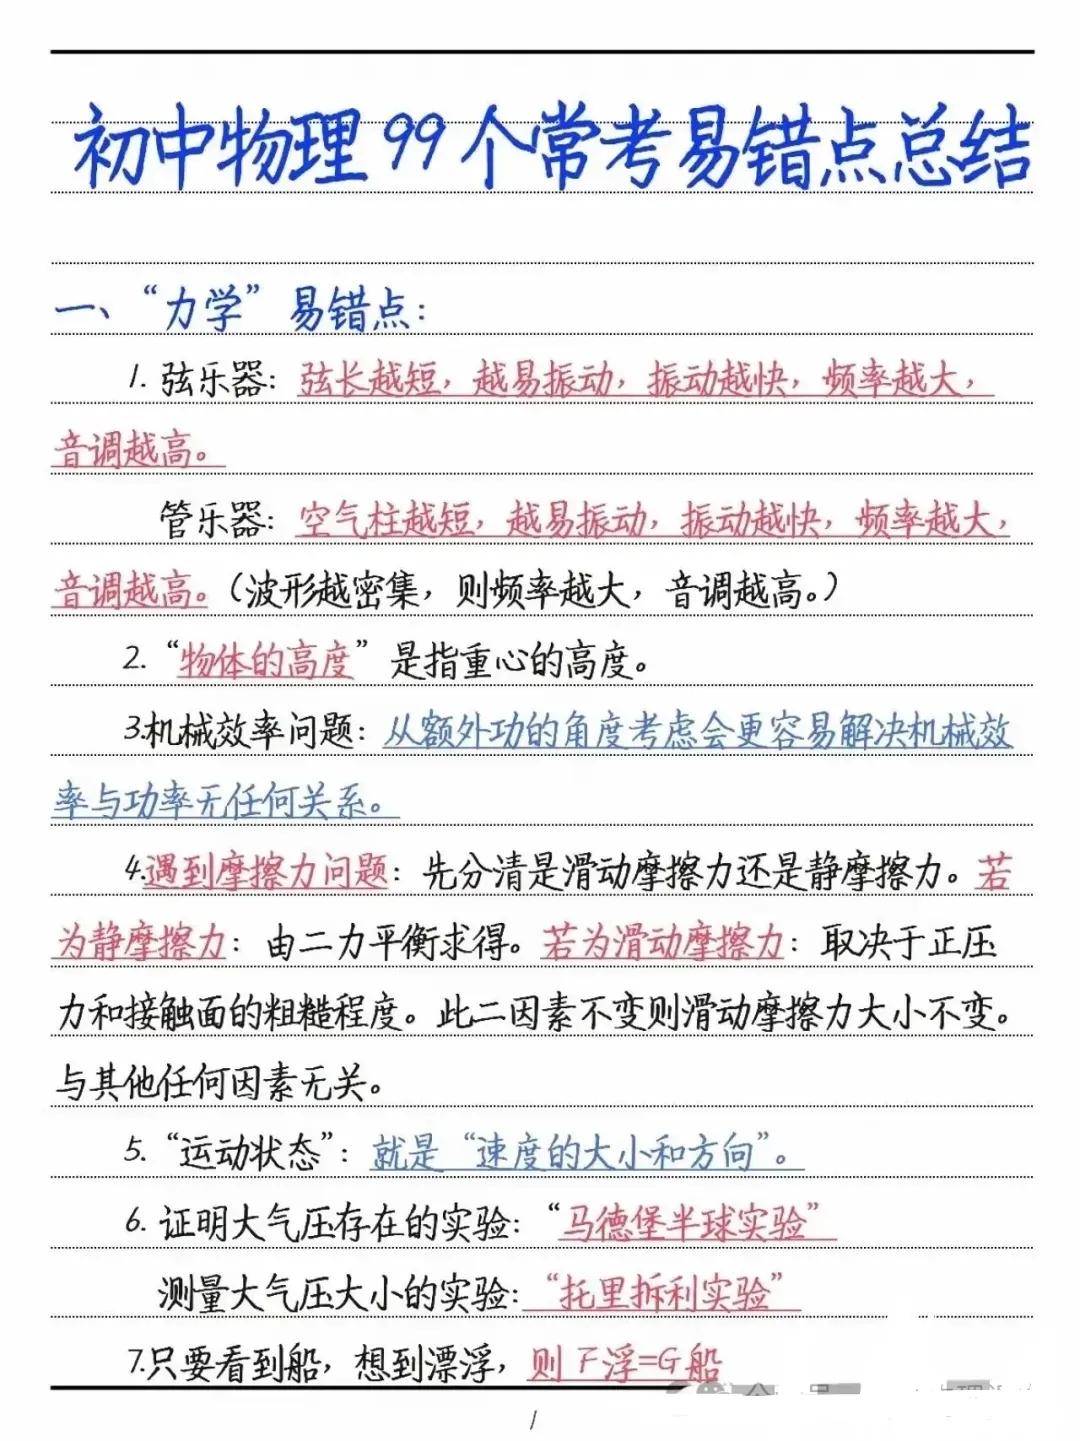 初中物理99个常考易错点总结
一、“力学”易错点:
1. 弦乐器: 弦长越短, 越易振动, 振动越快, 频率越大,
音调越高。
管乐器: 空气柱越短, 越易振动, 振动越快, 频率越大,
音调越高。(波形越密集, 则频率越大, 音调越高。)
2. “物体的高度”是指重心的高度。
3.机械效率问题: 从额外功的角度考虑会更容易解决机械效
率与功率无任何关系。
4.遇到摩擦力问题: 先分清是滑动摩擦力还是静摩擦力。若
为静摩擦力: 由二力平衡求得。若为滑动摩擦力: 取决于正压
力和接触面的粗糙程度。此二因素不变则滑动摩擦力大小不变。
与其他任何因素无关。
5. “运动状态”: 就是“速度的大小和方向”。
6. 证明大气压存在的实验: “马德堡半球实验”
测量大气压大小的实验: “托里拆利实验”
7.只要看到船, 想到漂浮, 则 F浮=G船
1